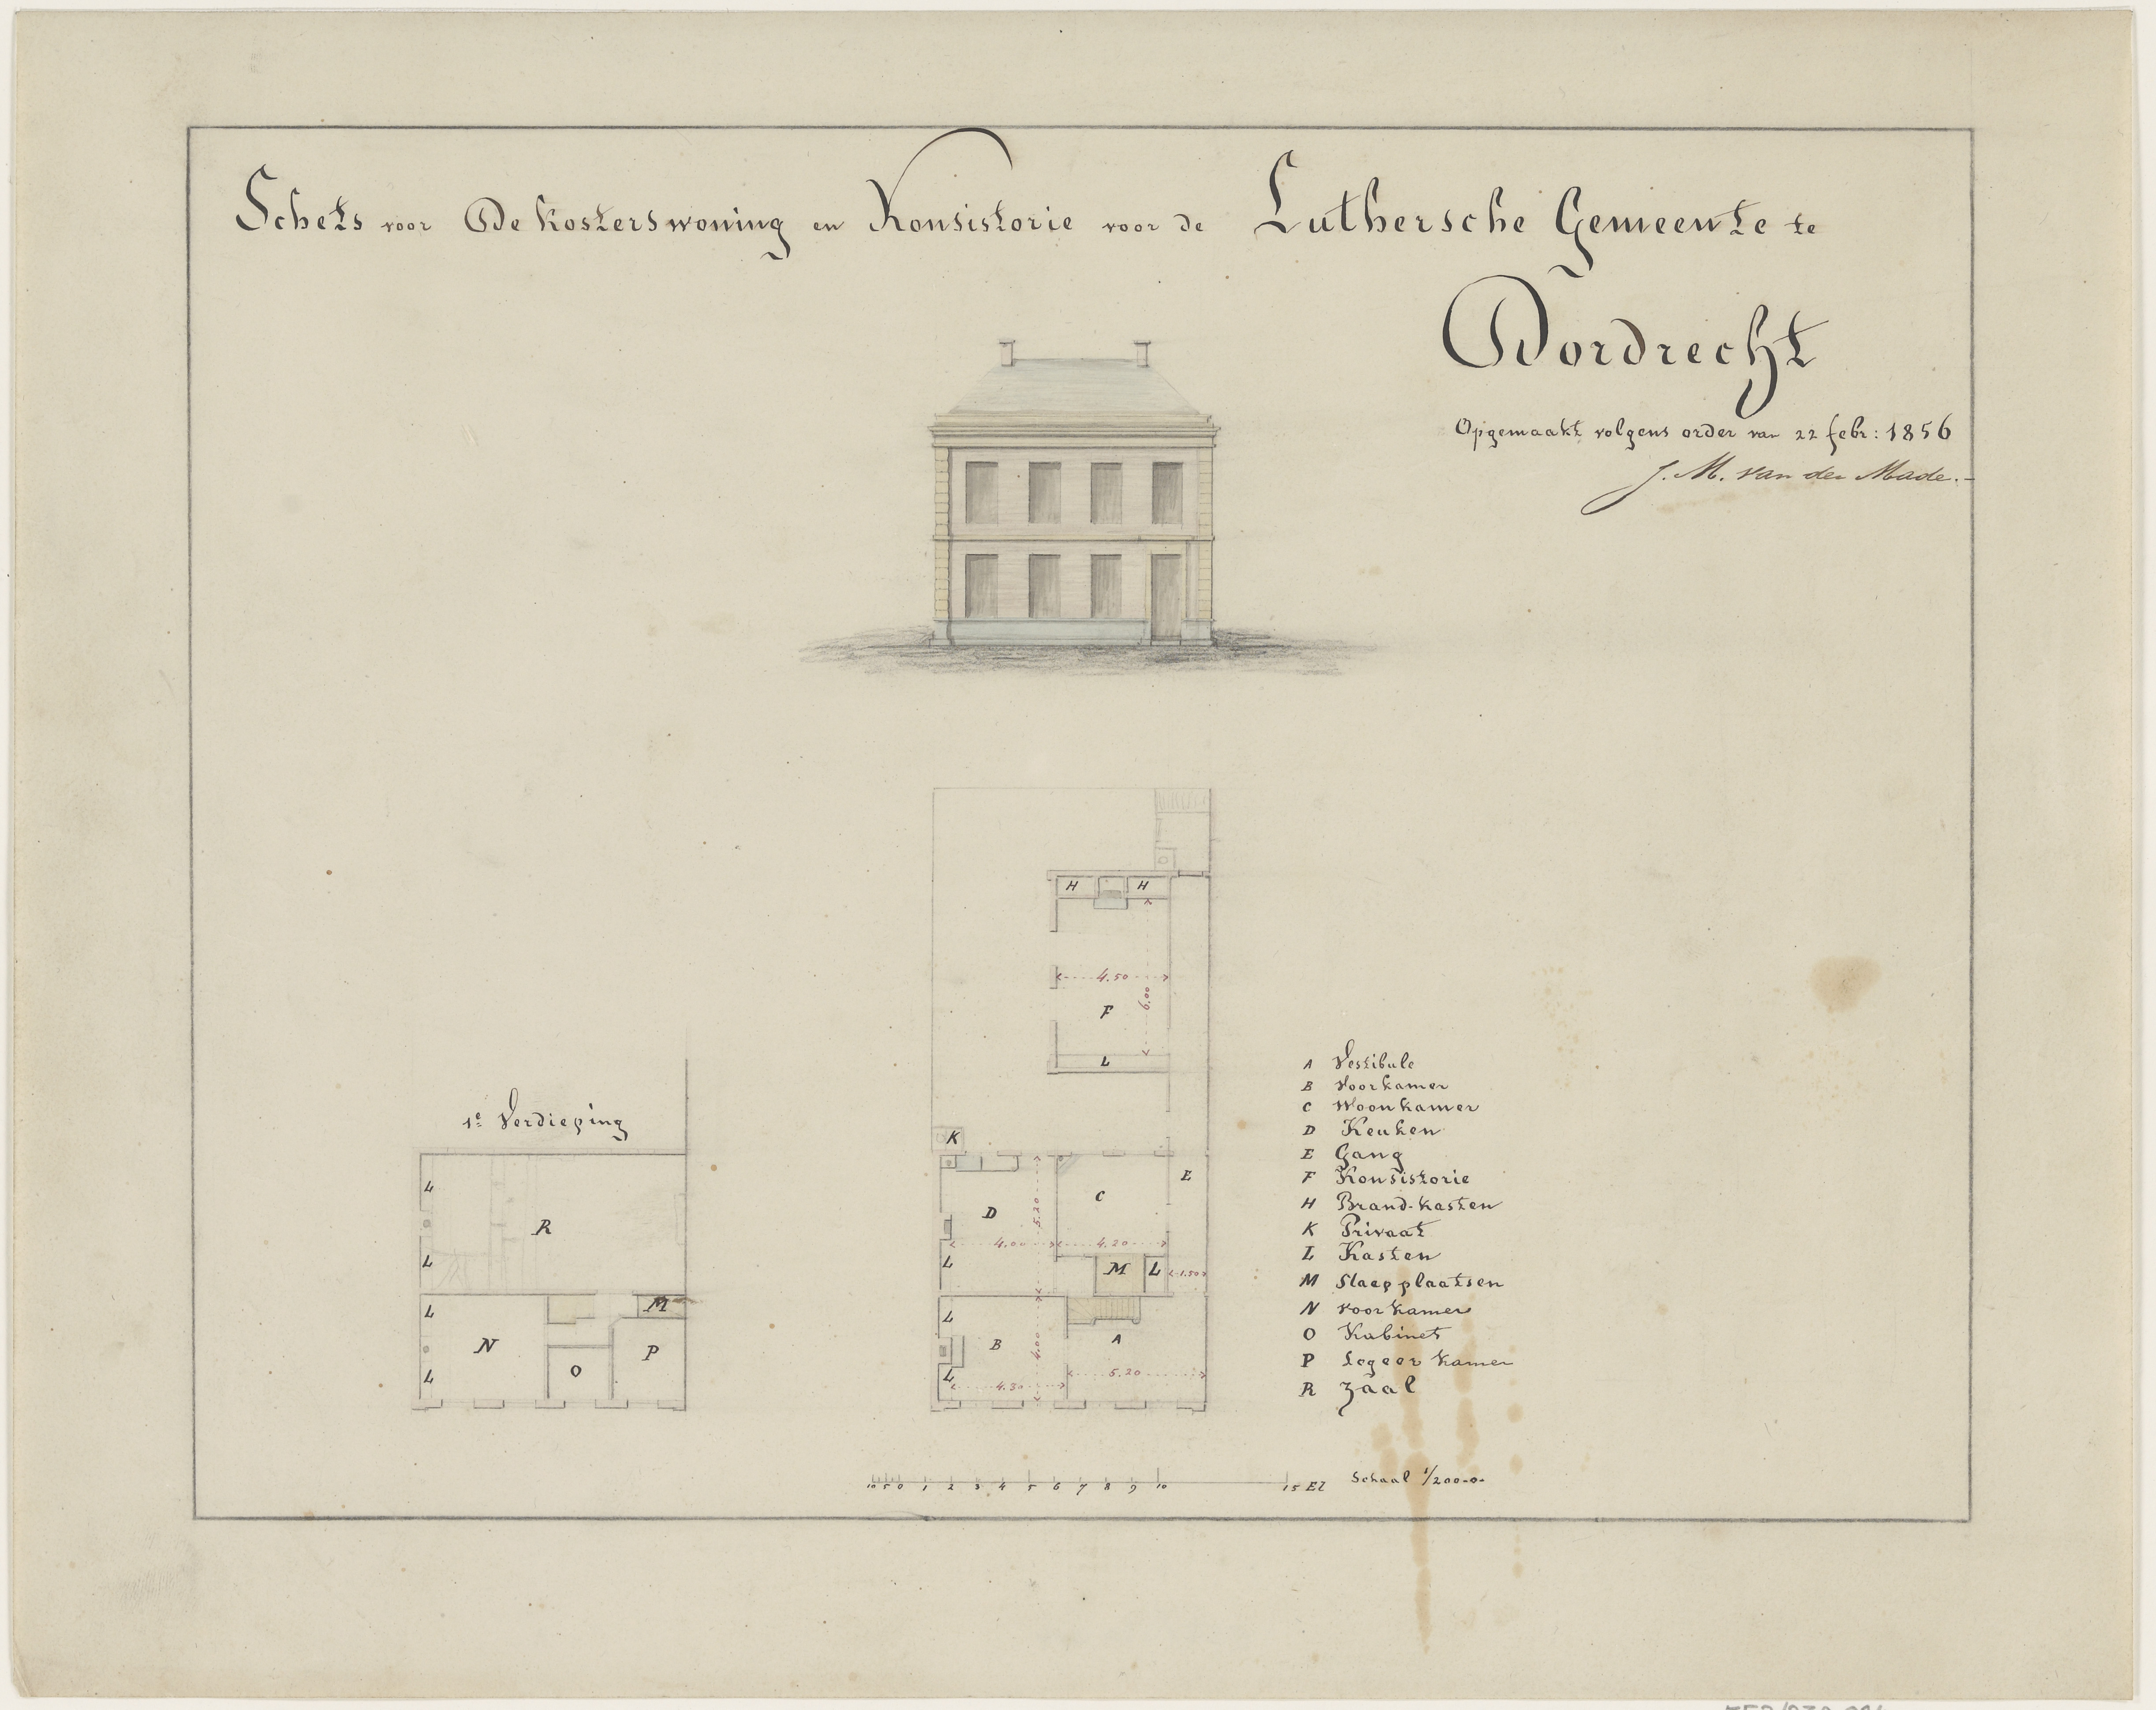 Schets voor De kosterswoning en Konsistorie voor de Luthersche Gemeente te
Dordrecht
Opgemaakt volgens order van 22 febr: 1856
J. M. van der Made.-
H H
4.50
6.00
F
L
1e Verdieping
K
L
R
L
L
M
N
O
P
L
E
C
D
5.20
4.00 4.20
L
M
L
1.50
L
B
A
4.00
L
4.30
5.20
A Vestibule
B Voorkamer
C Woonkamer
D Keuken
E Gang
F Konsistorie
H Brand-kasten
K Privaat
L Kasten
M Slaapplaatsen
N voorkamer
O Kabinet
P Logeer kamer
R Zaal
10 5 0 1 2 3 4 5 6 7 8 9 10 15 El
Schaal 1/200